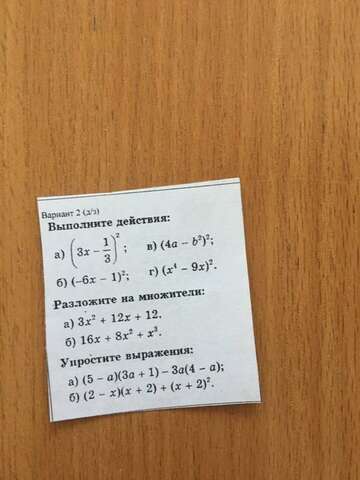 Вариант 2 (д/з)
Выполните действия:
а) (3x − 1/3)²; в) (4a − b²)²;
б) (−6x − 1)²; г) (x⁴ − 9x)².
Разложите на множители:
а) 3x² + 12x + 12.
б) 16x + 8x² + x³.
Упростите выражения:
а) (5 − a)(3a + 1) − 3a(4 − a);
б) (2 − x)(x + 2) + (x + 2)².